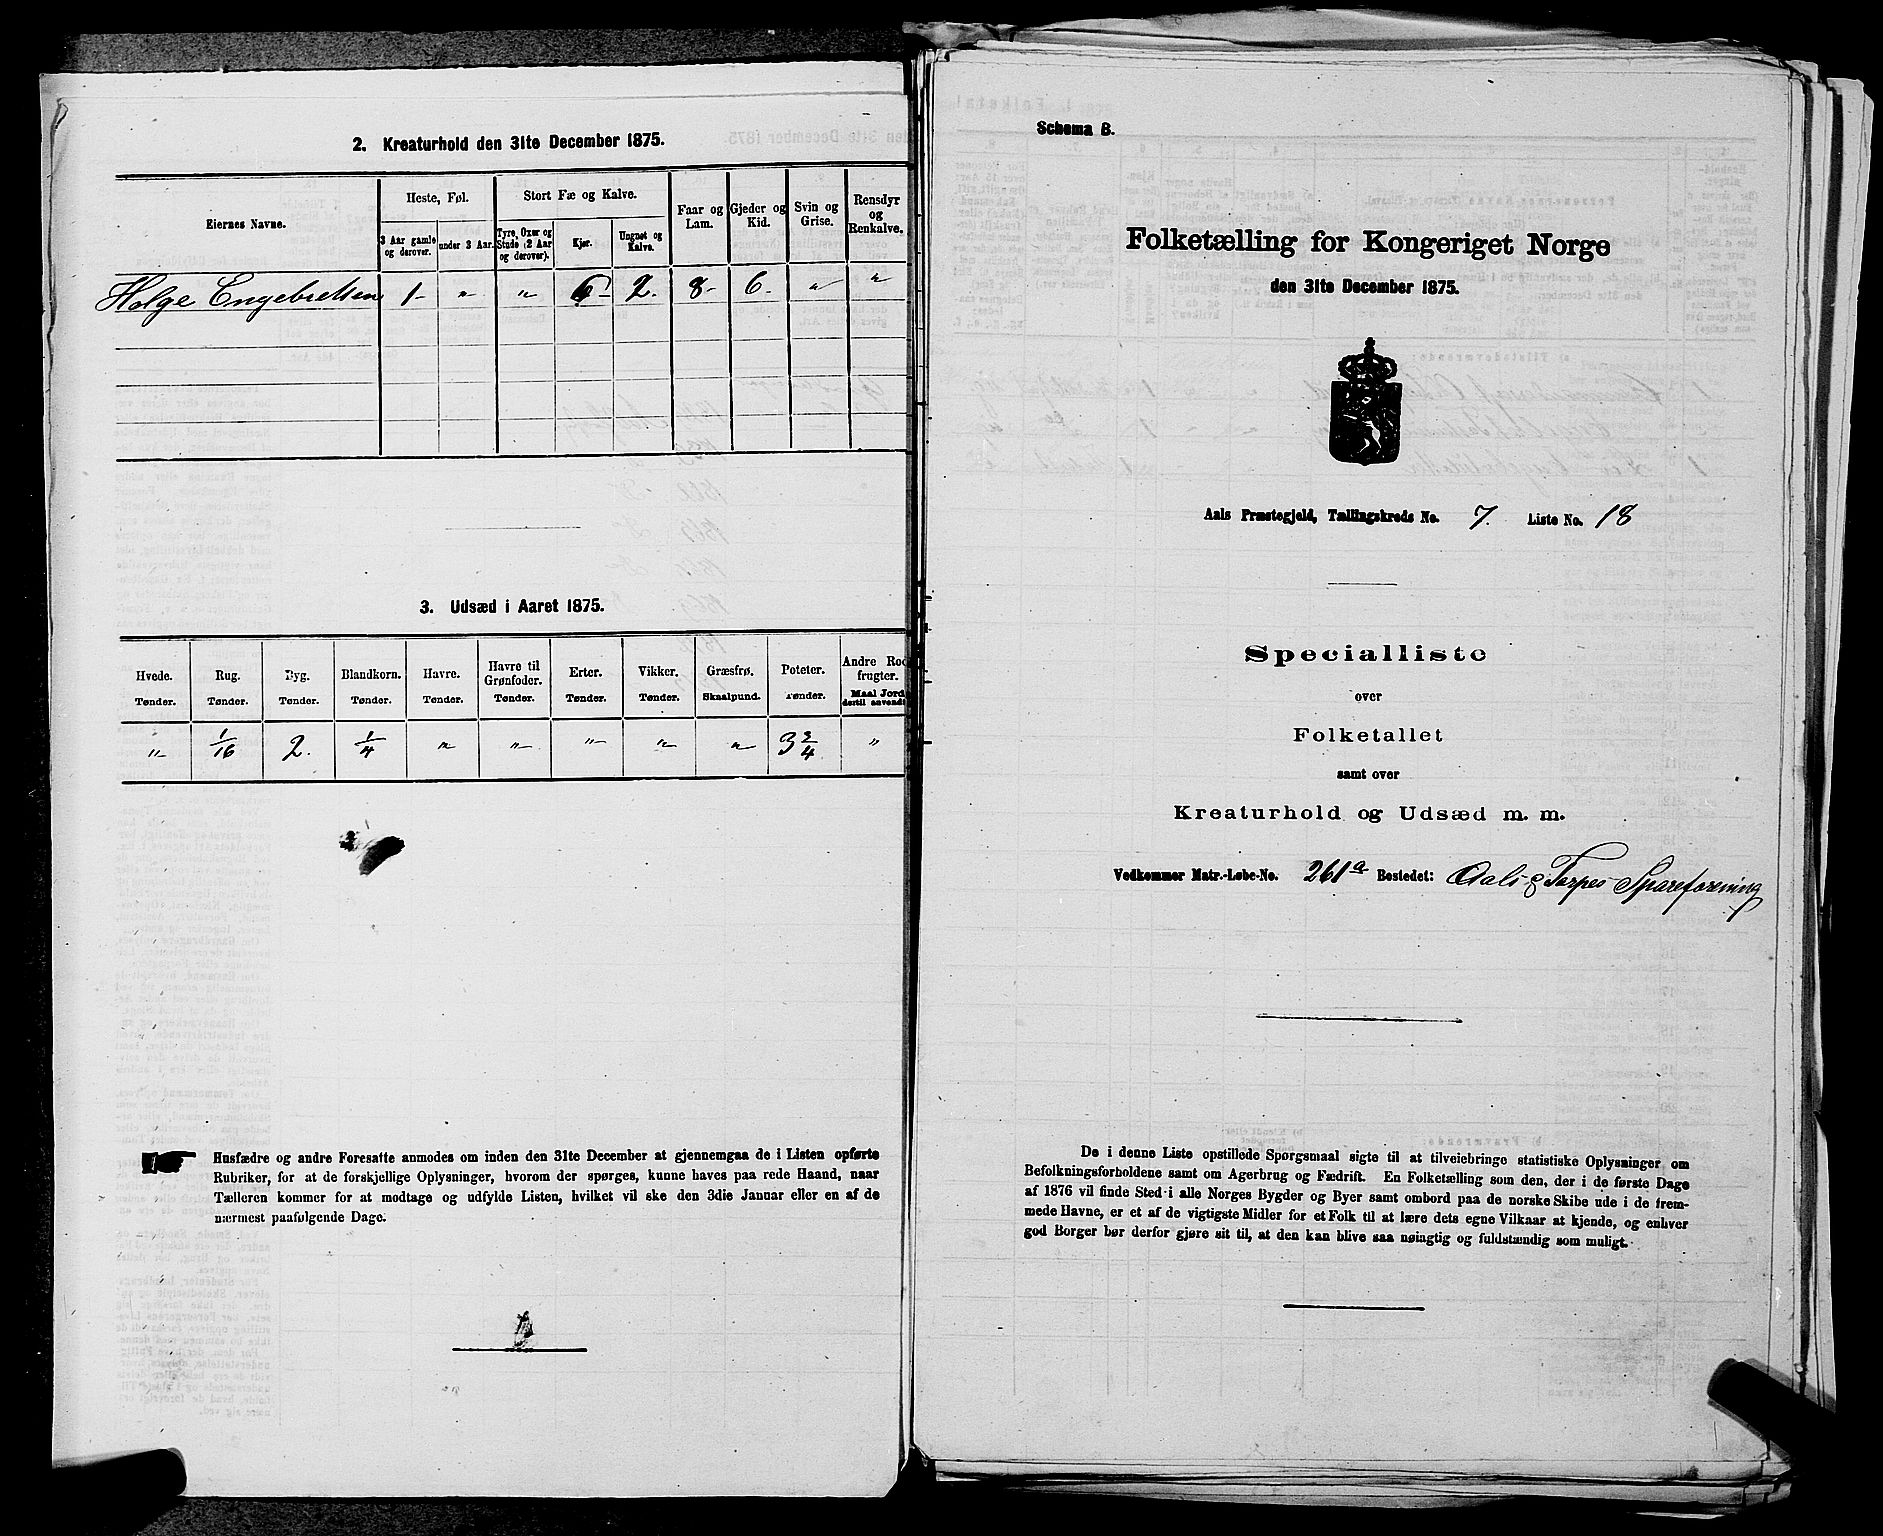 2. Kreaturhold den 31te December 1875.
Eiernes Navne.
Heste, Føl.
Stort Fæ og Kalve.
Faar og Lam.
Gjeder og Kid.
Svin og Grise.
Rensdyr og Renkalve.
3 Aar gamle og derover.
under 3 Aar.
Tyre, Oxer og Stude (2 Aar og derover).
Kjør.
Ungnøt og Kalve.
Holge Engebretsen 1 " " 6 2. 8 6. " "
3. Udsæd i Aaret 1875.
Hvede. Rug. Byg. Blandkorn. Havre. Havre til Grønfoder. Erter. Vikker. Græsfrø. Poteter. Andre Rodfrugter.
Tønder. Tønder. Tønder. Tønder. Tønder. Tønder. Tønder. Tønder. Skaalpund. Tønder. Maal Jord dertil anvendt
" 1/16 2. 1/4 " " " " " 3 3/4 "
Husfædre og andre Foresatte anmodes om inden den 31te December at gjennemgaa de i Listen opførte
Rubriker, for at de forskjellige Oplysninger, hvorom der spørges, kunne haves paa rede Haand, naar
Tælleren kommer for at modtage og udfylde Listen, hvilket vil ske den 3die Januar eller en af de
nærmest paafølgende Dage.
Schema B.
Folketælling for Kongeriget Norge
den 31te December 1875.
Aals Præstegjeld, Tællingskreds No. 7. Liste No. 18
Specialliste
over
Folketallet
samt over
Kreaturhold og Udsæd m. m.
Vedkommer Matr.-Løbe-No. 261a Bostedet: Aals & Torpes Spareforening
De i denne Liste opstillede Spørgsmaal sigte til at tilveiebringe statistiske Oplysninger om
Befolkningsforholdene samt om Agerbrug og Fædrift. En Folketælling som den, der i de første Dage
af 1876 vil finde Sted i alle Norges Bygder og Byer samt ombord paa de norske Skibe ude i de frem-
mede Havne, er et af de vigtigste Midler for et Folk til at lære dets egne Vilkaar at kjende, og enhver
god Borger bør derfor gjøre sit til, at den kan blive saa nøiagtig og fuldstændig som muligt.